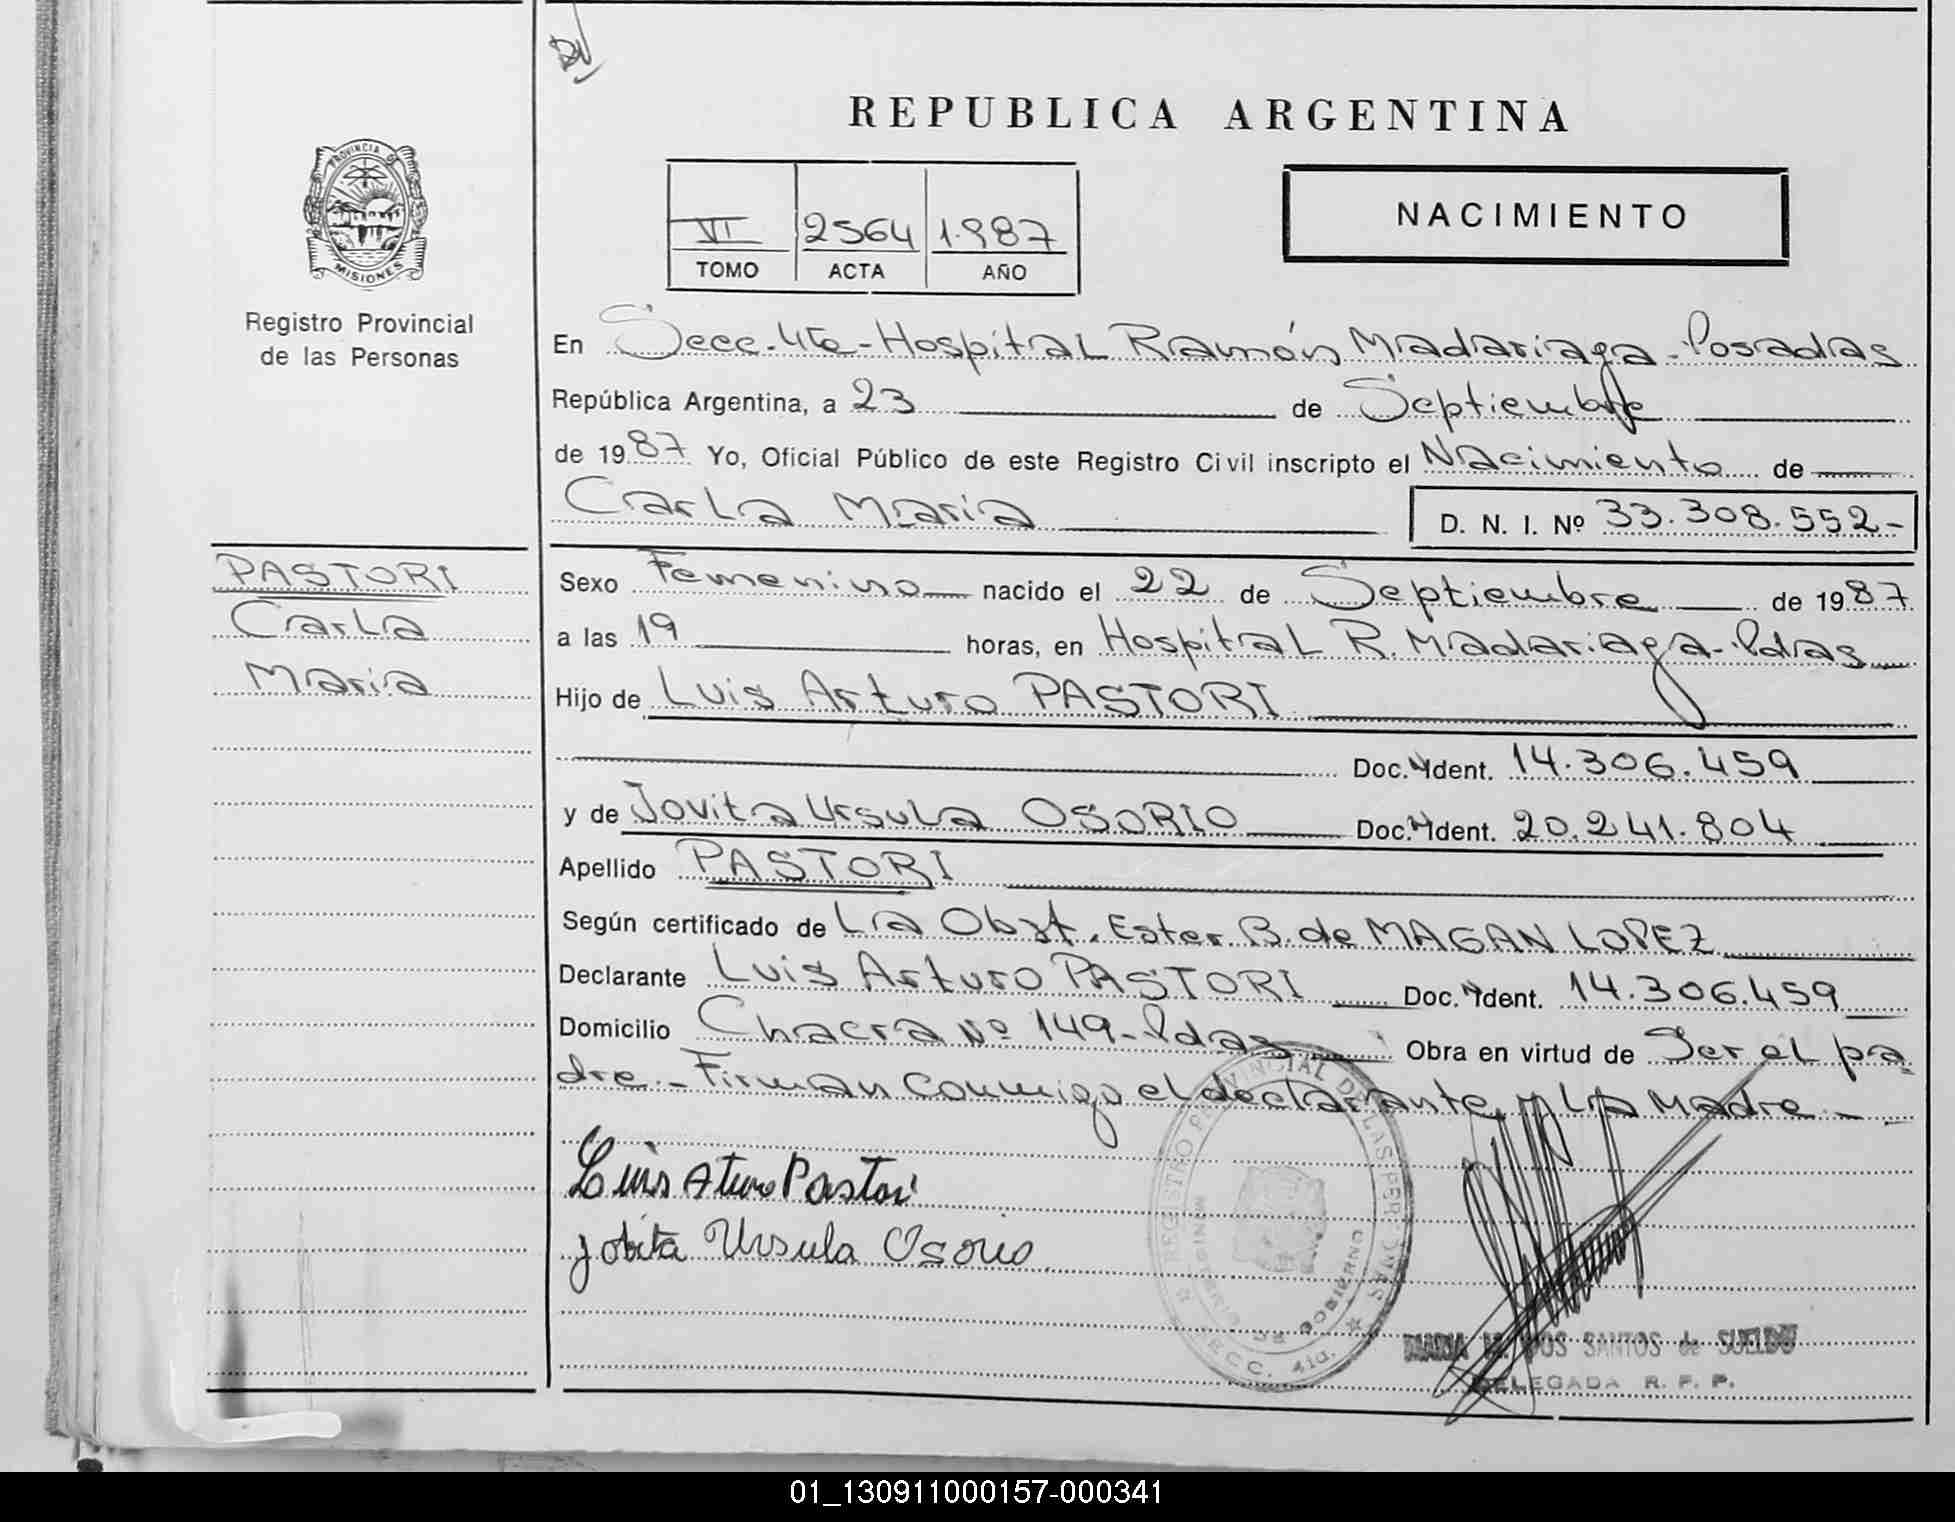 REPUBLICA ARGENTINA
PROVINCIA DE
MISIONES
Registro Provincial
de las Personas
VI 2564 1.987
TOMO ACTA AÑO
NACIMIENTO
En Secc. 4ta - Hospital Ramón Madariaga - Posadas
República Argentina, a 23 de Septiembre
de 1987 Yo, Oficial Público de este Registro Civil inscripto el Nacimiento de
Carla Maria D. N. I. Nº 33.308.552-
PASTORI
Carla
Maria
Sexo Femenino nacido el 22 de Septiembre de 1987
a las 19 horas, en Hospital R. Madariaga - Pdas
Hijo de Luis Arturo PASTORI
Doc. Ident. 14.306.459
y de Jovita Ursula OSORIO Doc. Ident. 20.241.804
Apellido PASTORI
Según certificado de La Obst. Ester B. de MAGAN LOPEZ
Declarante Luis Arturo PASTORI Doc. Ident. 14.306.459
Domicilio Chacra Nº 149 - Pdas Obra en virtud de Ser el pa-
dre - Firman conmigo el declarante y La Madre -
Luis Aturo Pastori
jobita Ursula Osorio
REGISTRO PROVINCIAL DE LAS PERSONAS
MINISTERIO DE GOBIERNO
SECC. 4ta.
MARIA M. DOS SANTOS de SUELDO
DELEGADA R. P. P.
01_130911000157-000341